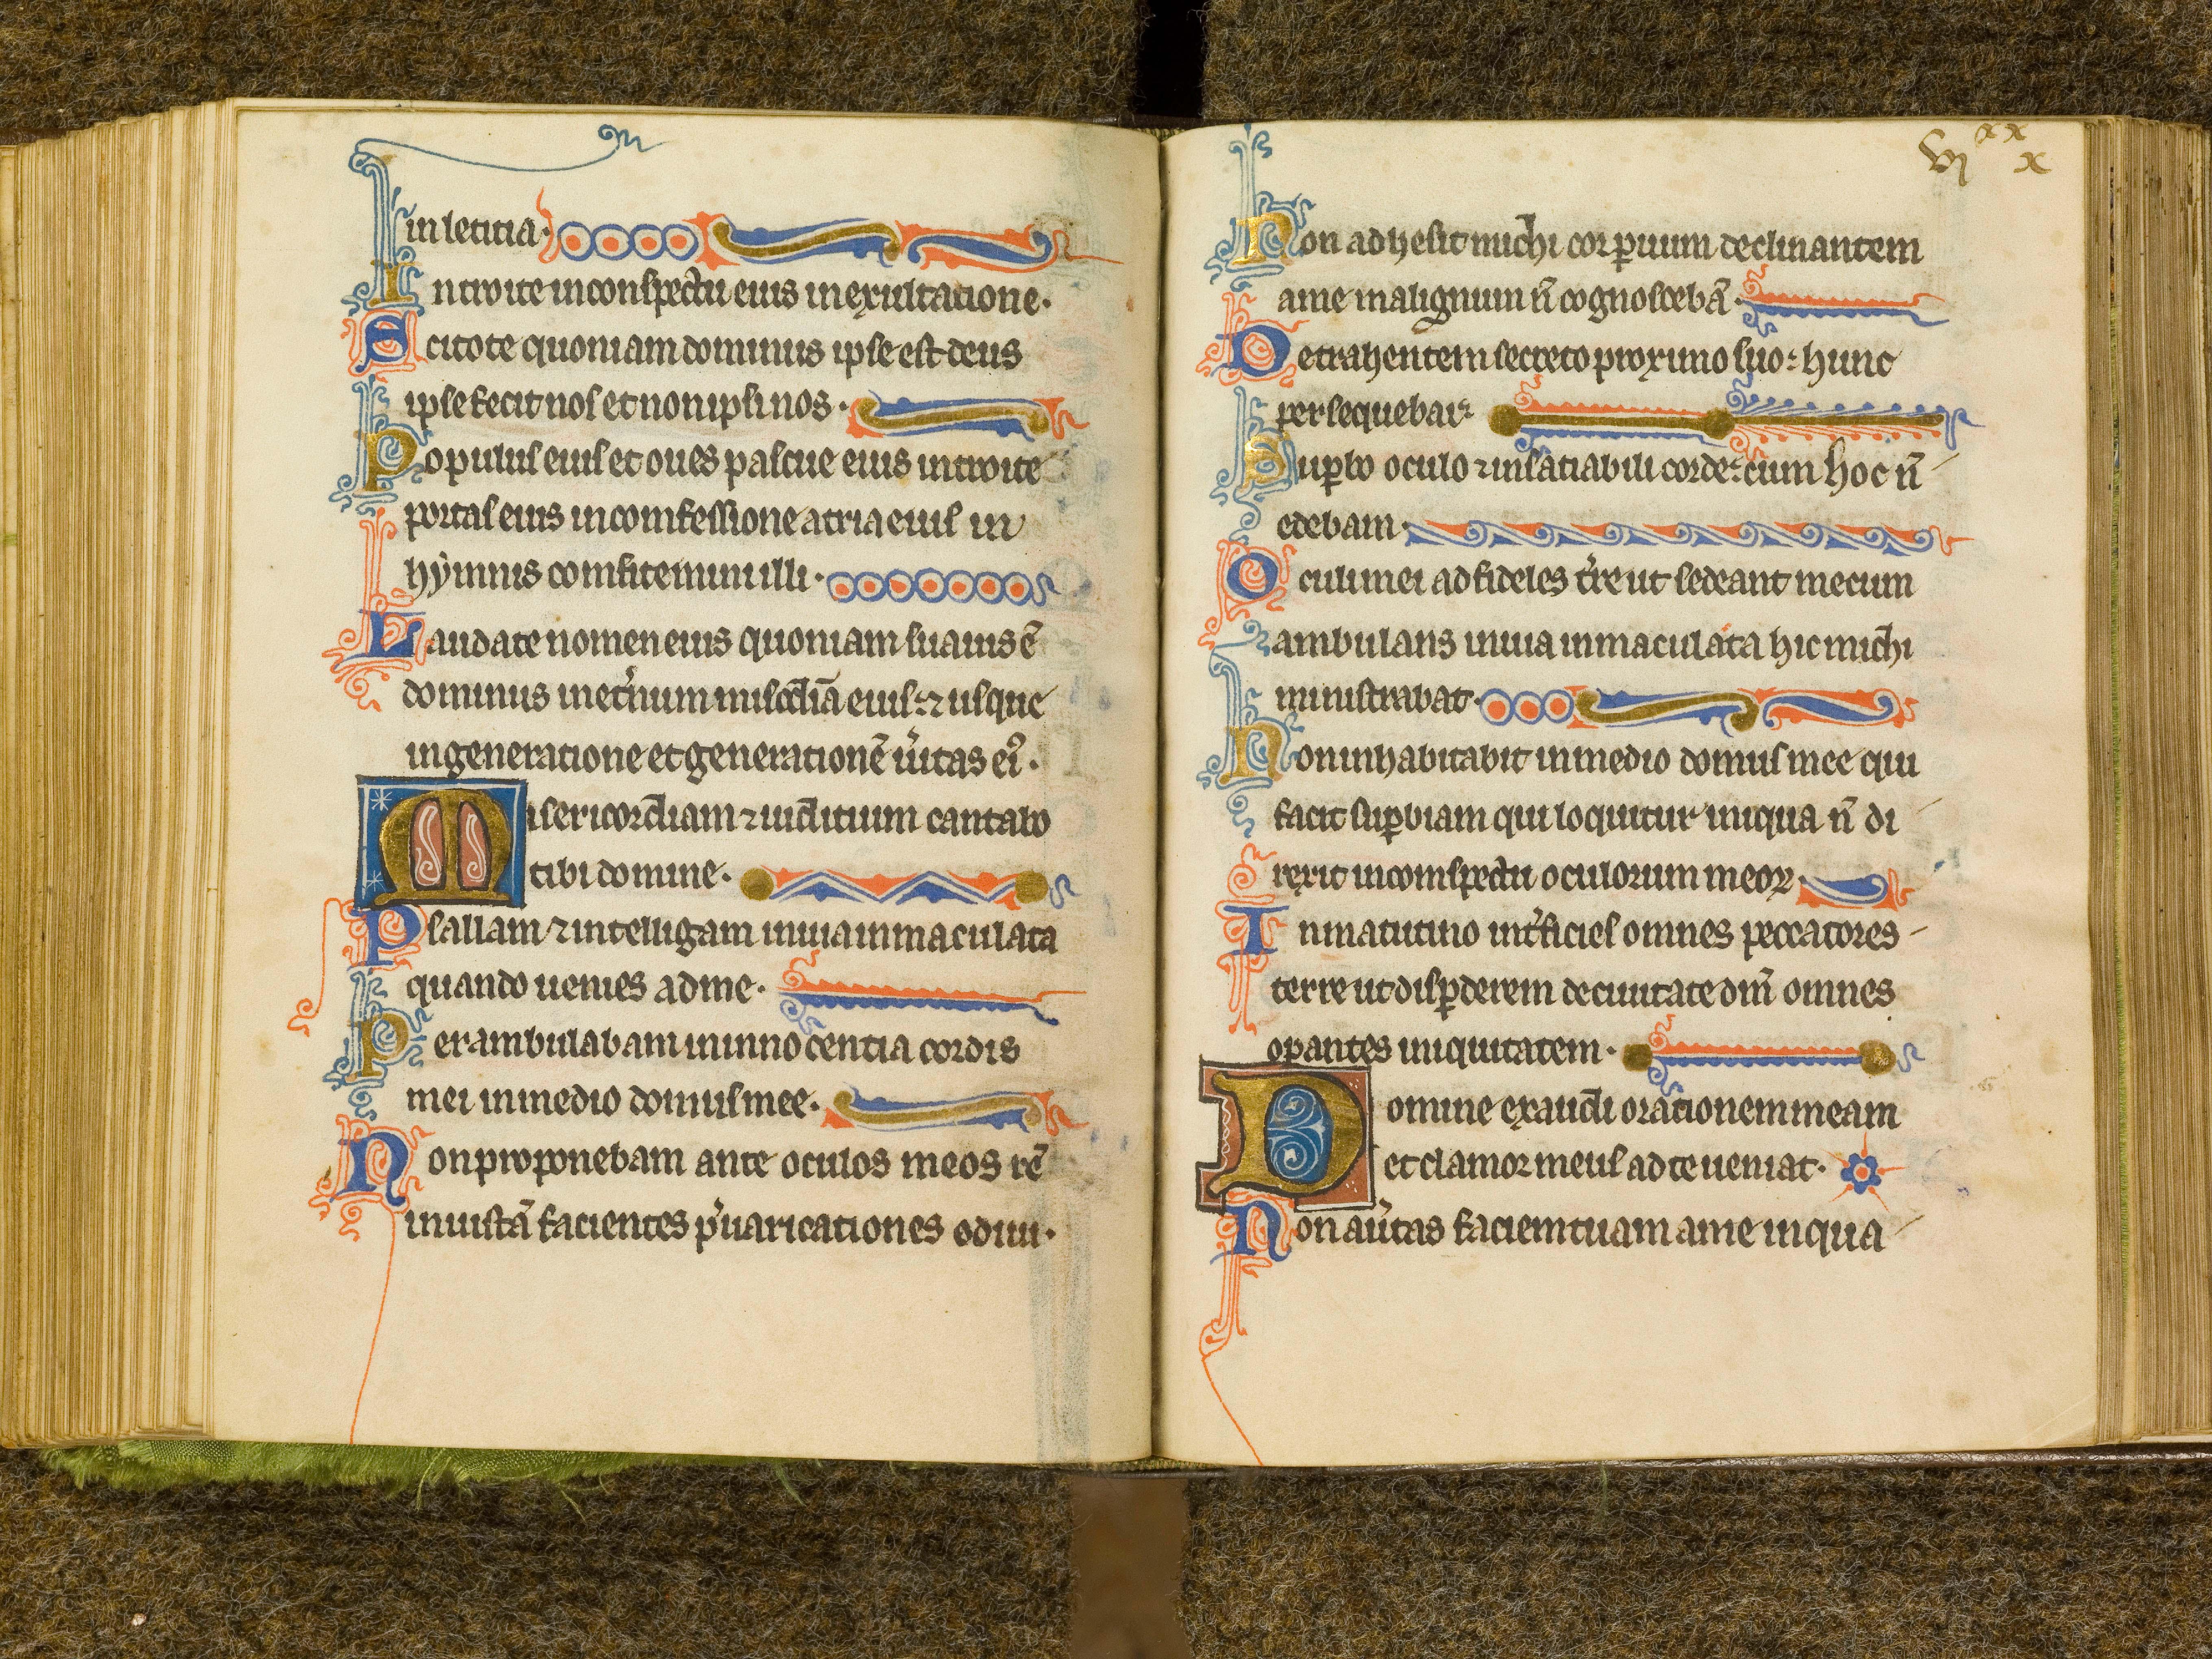 in leticia·
Introite in conspectu eius in exultatione·
Scitote quoniam dominus ipse est deus
ipse fecit nos et non ipsi nos·
Populus eius et oues pascue eius introite
portas eius in comfessione atria eius in
hymnis comfitemini illi·
Laudate nomen eius quoniam suauis ē
dominus inet'num misc̄dīa eius: ⁊ usque
in generatione et generationē ūitas eiꝰ·
Misericordiam ⁊ iudicium cantabo
tibi domine·
Psallam ⁊ intelligam in uia inmaculata
quando uenies ad me·
Perambulabam in innocentia cordis
mei in medio domus mee·
Non proponebam ante oculos meos rē
iniustā facientes p'uaricationes odiui·
vi xx x
Non adhesit michi cor ꝑuum declinantem
a me malignum n̄ cognoscebā·
Detrahentem secreto proximo suo: hunc
persequebar
Suꝑbo oculo ⁊ insatiabili corde: cum hoc n̄
edebam·
Oculi mei ad fideles t're ut sedeant mecum
ambulans in uia inmaculata hic michi
ministrabat·
Non inhabitabit in medio domus mee qui
facit suꝑbiam qui loquitur iniqua n̄ di
rexit in comspectu oculorum meoꝝ·
In matutino int'ficies omnes peccatores
terre ut disꝑderem de ciuitate dn̄i omnes
oꝑantes iniquitatem·
Domine exaudi orationem meam
et clamor meus ad te ueniat·
Non au'tas faciem tuam a me in qua